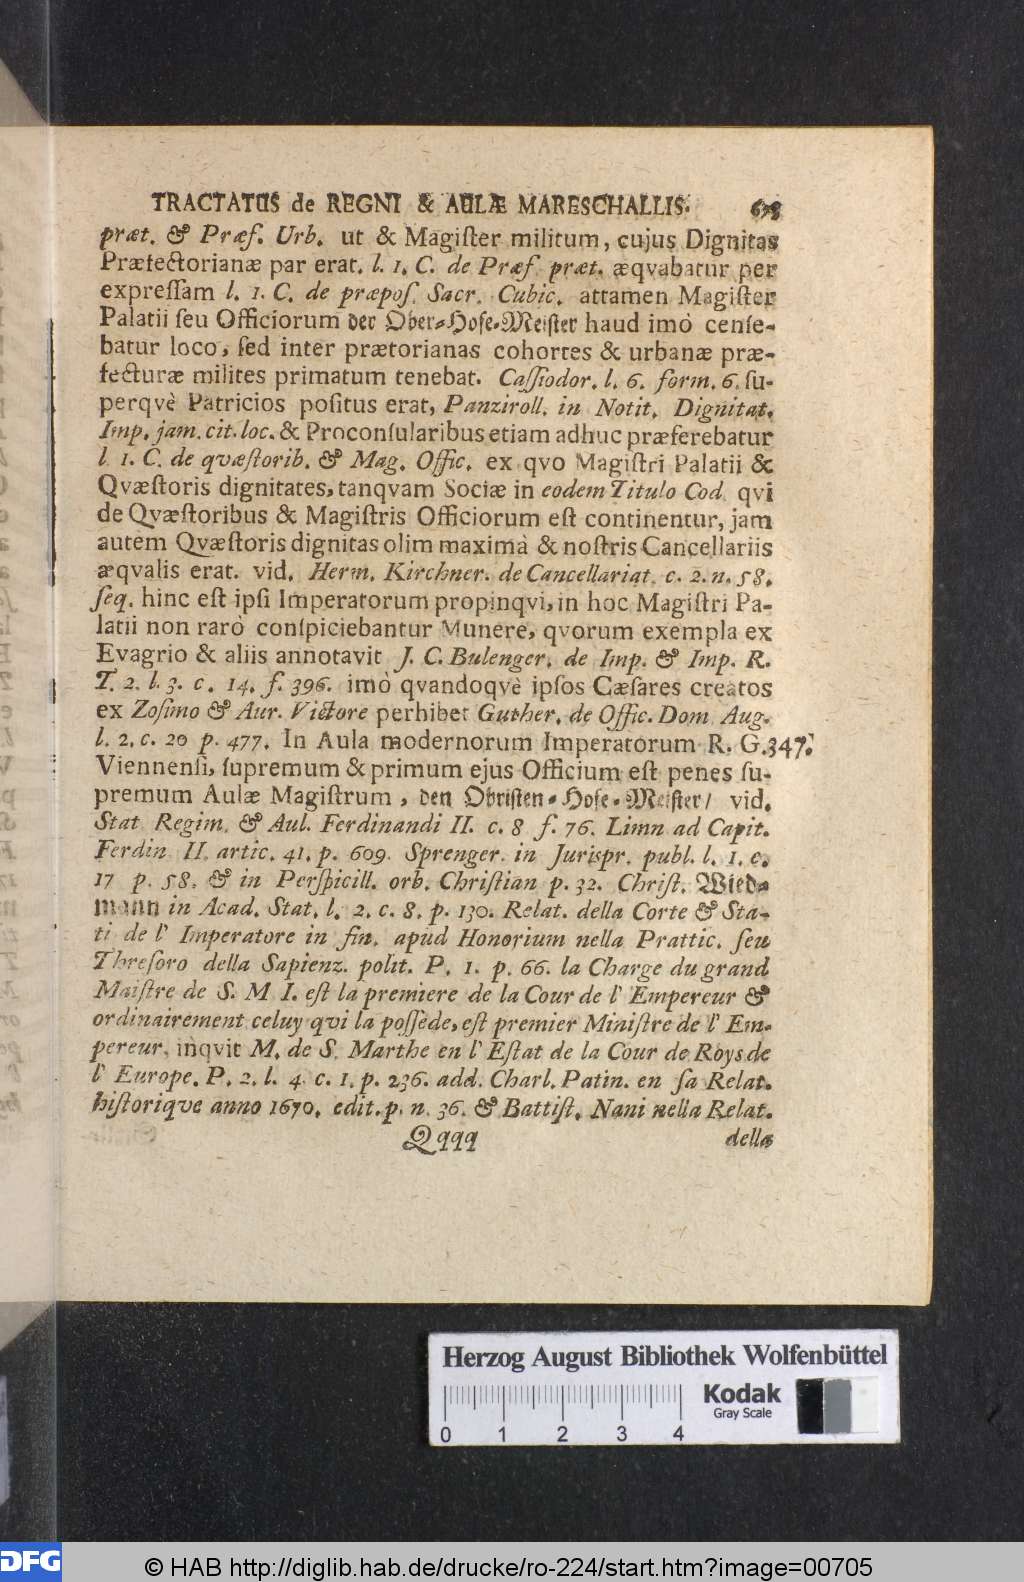 TRACTATUS de REGNI & AULÆ MARESCHALLIS.
præt. & Præf. Urb. ut & Magiſter militum, cujus Dignitas
Præfectorianæ par erat. l. 1. C. de Præf. præt. æqvabatur per
expreſſam l. 1. C. de præpoſ. Sacr. Cubic. attamen Magiſter
Palatii ſeu Officiorum der Ober-Hofe-Meiſter haud imò cenſe-
batur loco, ſed inter prætorianas cohortes & urbanæ præ-
fecturæ milites primatum tenebat. Caſſiodor. l. 6. form. 6. ſu-
perqvè Patricios poſitus erat, Panziroll. in Notit. Dignitat.
Imp. jam. cit. loc. & Proconſularibus etiam adhuc præferebatur
l. 1. C. de qvæſtorib. & Mag. Offic. ex qvo Magiſtri Palatii &
Qvæſtoris dignitates, tanqvam Sociæ in eodem Titulo Cod. qvi
de Qvæſtoribus & Magiſtris Officiorum eſt continentur, jam
autem Qvæſtoris dignitas olim maximà & noſtris Cancellariis
æqvalis erat. vid. Herm. Kirchner. de Cancellariat. c. 2. n. 58.
ſeq. hinc eſt ipſi Imperatorum propinqvi, in hoc Magiſtri Pa-
latii non rarò conſpiciebantur Munere, qvorum exempla ex
Evagrio & aliis annotavit J. C. Bulenger. de Imp. & Imp. R.
T. 2. l. 3. c. 14. f. 396. imò qvandoqvè ipſos Cæſares creatos
ex Zoſimo & Aur. Victore perhibet Guther. de Offic. Dom. Aug.
l. 2. c. 20 p. 477. In Aula modernorum Imperatorum R. G. 347.
Viennenſi, ſupremum & primum ejus Officium eſt penes ſu-
premum Aulæ Magiſtrum, den Obriſten-Hofe-Meiſter/ vid.
Stat. Regim. & Aul. Ferdinandi II. c. 8 f. 76. Limn ad Capit.
Ferdin. II. artic. 41. p. 609. Sprenger. in Jurispr. publ. l. 1. c.
17 p. 58. & in Perſpicill. orb. Chriſtian p. 32. Chriſt. Wied-
mann in Acad. Stat. l. 2. c. 8. p. 130. Relat. della Corte & Sta-
ti de l' Imperatore in fin. apud Honorium nella Prattic. ſeu
Threſoro della Sapienz. polit. P. 1. p. 66. la Charge du grand
Maiſtre de S. M I. eſt la premiere de la Cour de l' Empereur &
ordinairement celuy qvi la poſſede, eſt premier Miniſtre de l' Em-
pereur, inqvit M. de S. Marthe en l' Eſtat de la Cour de Roys de
l' Europe. P. 2. l. 4. c. 1. p. 236. add. Charl. Patin. en ſa Relat.
hiſtoriqve anno 1670. edit. p. n. 36. & Battiſt. Nani nella Relat.
Qqqq della
Herzog August Bibliothek Wolfenbüttel
Kodak
Gray Scale
0 1 2 3 4
DFG
© HAB http://diglib.hab.de/drucke/ro-224/start.htm?image=00705